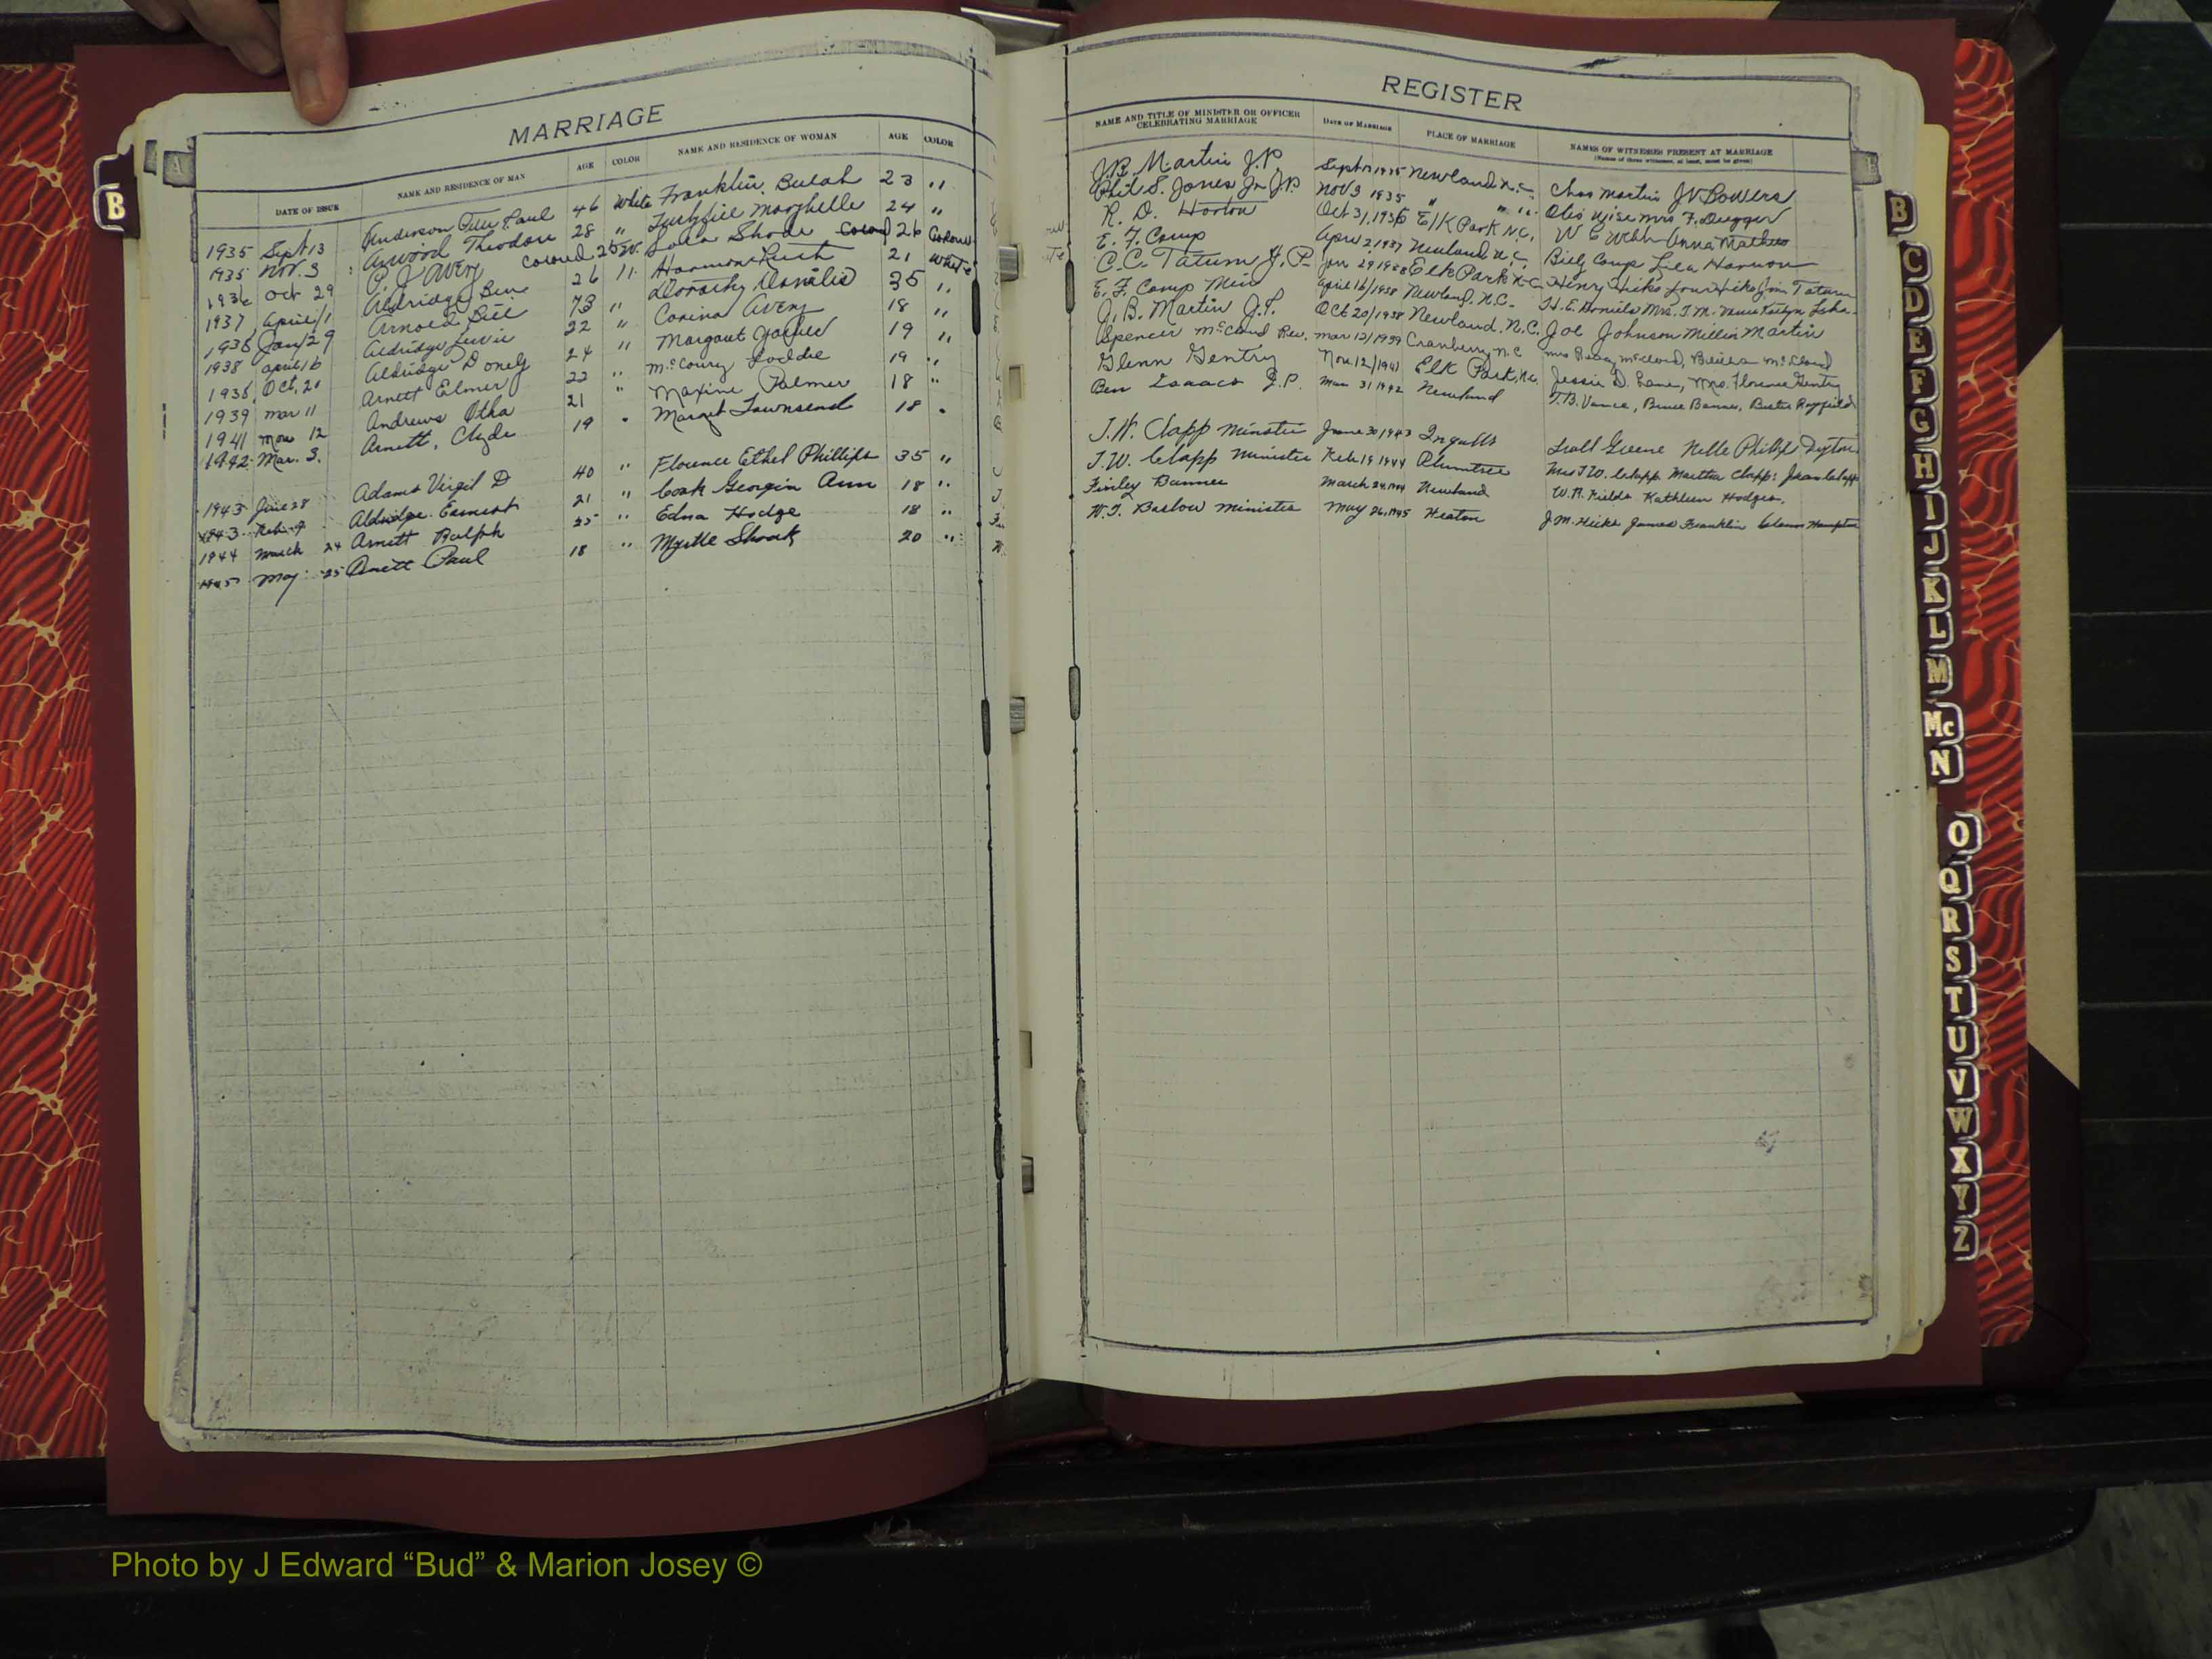 MARRIAGE
DATE OF ISSUE NAME AND RESIDENCE OF MAN AGE COLOR NAME AND RESIDENCE OF WOMAN AGE COLOR
1935 Sept 13 Anderson Paul 46 White Franklin, Bulah 23 "
1935 Nov. 3 Atwood Theodore 28 " Marybelle 24 "
1936 Oct 29 P. J Avery Colored 25 Lola Shade Colored 26 Colored
1937 April 1 Aldridge Ben 26 " Harmon Ruth 21 White
1938 Jan/29 Arnold Bill 73 " Dorothy Daniels 35 "
1938 april 16 Aldridge 22 " Corina Avery 18 "
1938 Oct, 20 Aldridge Donely 24 " Margaut 19 "
1939 mar 11 Arnett Elmer 22 " McCoury 19 "
1941 Nov 12 Andrews Otha 21 " Maxine Palmer 18 "
1942 Mar. 3. Arnett, Clyde 19 " Margret Townsend 18 "
1943 June 28 Adams Virgil D 40 " Florence Ethel Phillips 35 "
1943 Aldridge Earnest 21 " Cook Georgia Ann 18 "
1944 March 24 Arnett Ralph 25 " Edna Hodge 18 "
1945 May 25 Arnett Paul 18 " Myrtle Shook 20 "
REGISTER
NAME AND TITLE OF MINISTER OR OFFICER CELEBRATING MARRIAGE DATE OF MARRIAGE PLACE OF MARRIAGE NAMES OF WITNESSES PRESENT AT MARRIAGE
(Names of three witnesses, at least, must be given)
J.B. Martin J.P. Sept 13 1935 Newland N.C. Chas Martin JV Bowers
Phil S. Jones Jr J.P. Nov 3 1935 " " Otis Wise Mrs F. Dugger
R. D. Horton Oct 31, 1936 Elk Park N.C. W C Webb Anna Mathes
E. F. Camp April 2 1937 Newland N.C. Billy Camp Lila Harmon
C.C. Tatum J.P. Jan 29 1938 Elk Park N.C. Henry Hicks Tatum
E. F. Camp Min April 16/1938 Newland, N.C. H.E. Daniels Mrs. T.M.
J. B. Martin J.P. Oct 20/1938 Newland. N.C. Joe Johnson Millin Martin
Spencer McCloud Rev. Mar 12/1939 Cranberry N.C Mrs McCloud, McCloud
Glenn Gentry Nov. 12/1941 Elk Park, N.C. Jessie D. Lane, Mrs. Florence Gentry
Ben Isaacs J.P. Mar 31 1942 Newland T.B. Vance, Bruce Banner, Buster Rayfield
J.W. Clapp Minster June 30 1943 Ingalls Greene Nelle Philips Dyton
J.W. Clapp Minister Feb. 19 1944 Plumtree Mrs J.W. Clapp Martha Clapp: Jean Clapp
Finley Banner March 24, 1944 Newland W.R. Fields Kathleen Hodges.
W.T. Barlow Minister May 26, 1945 Heaton J.M. Hicks James Franklin Hampton
A
B
B
C
D
E
F
G
H
I
J
K
L
M
Mc
N
O
Q
R
S
T
U
V
W
X
Y
Z
Photo by J Edward “Bud” & Marion Josey ©